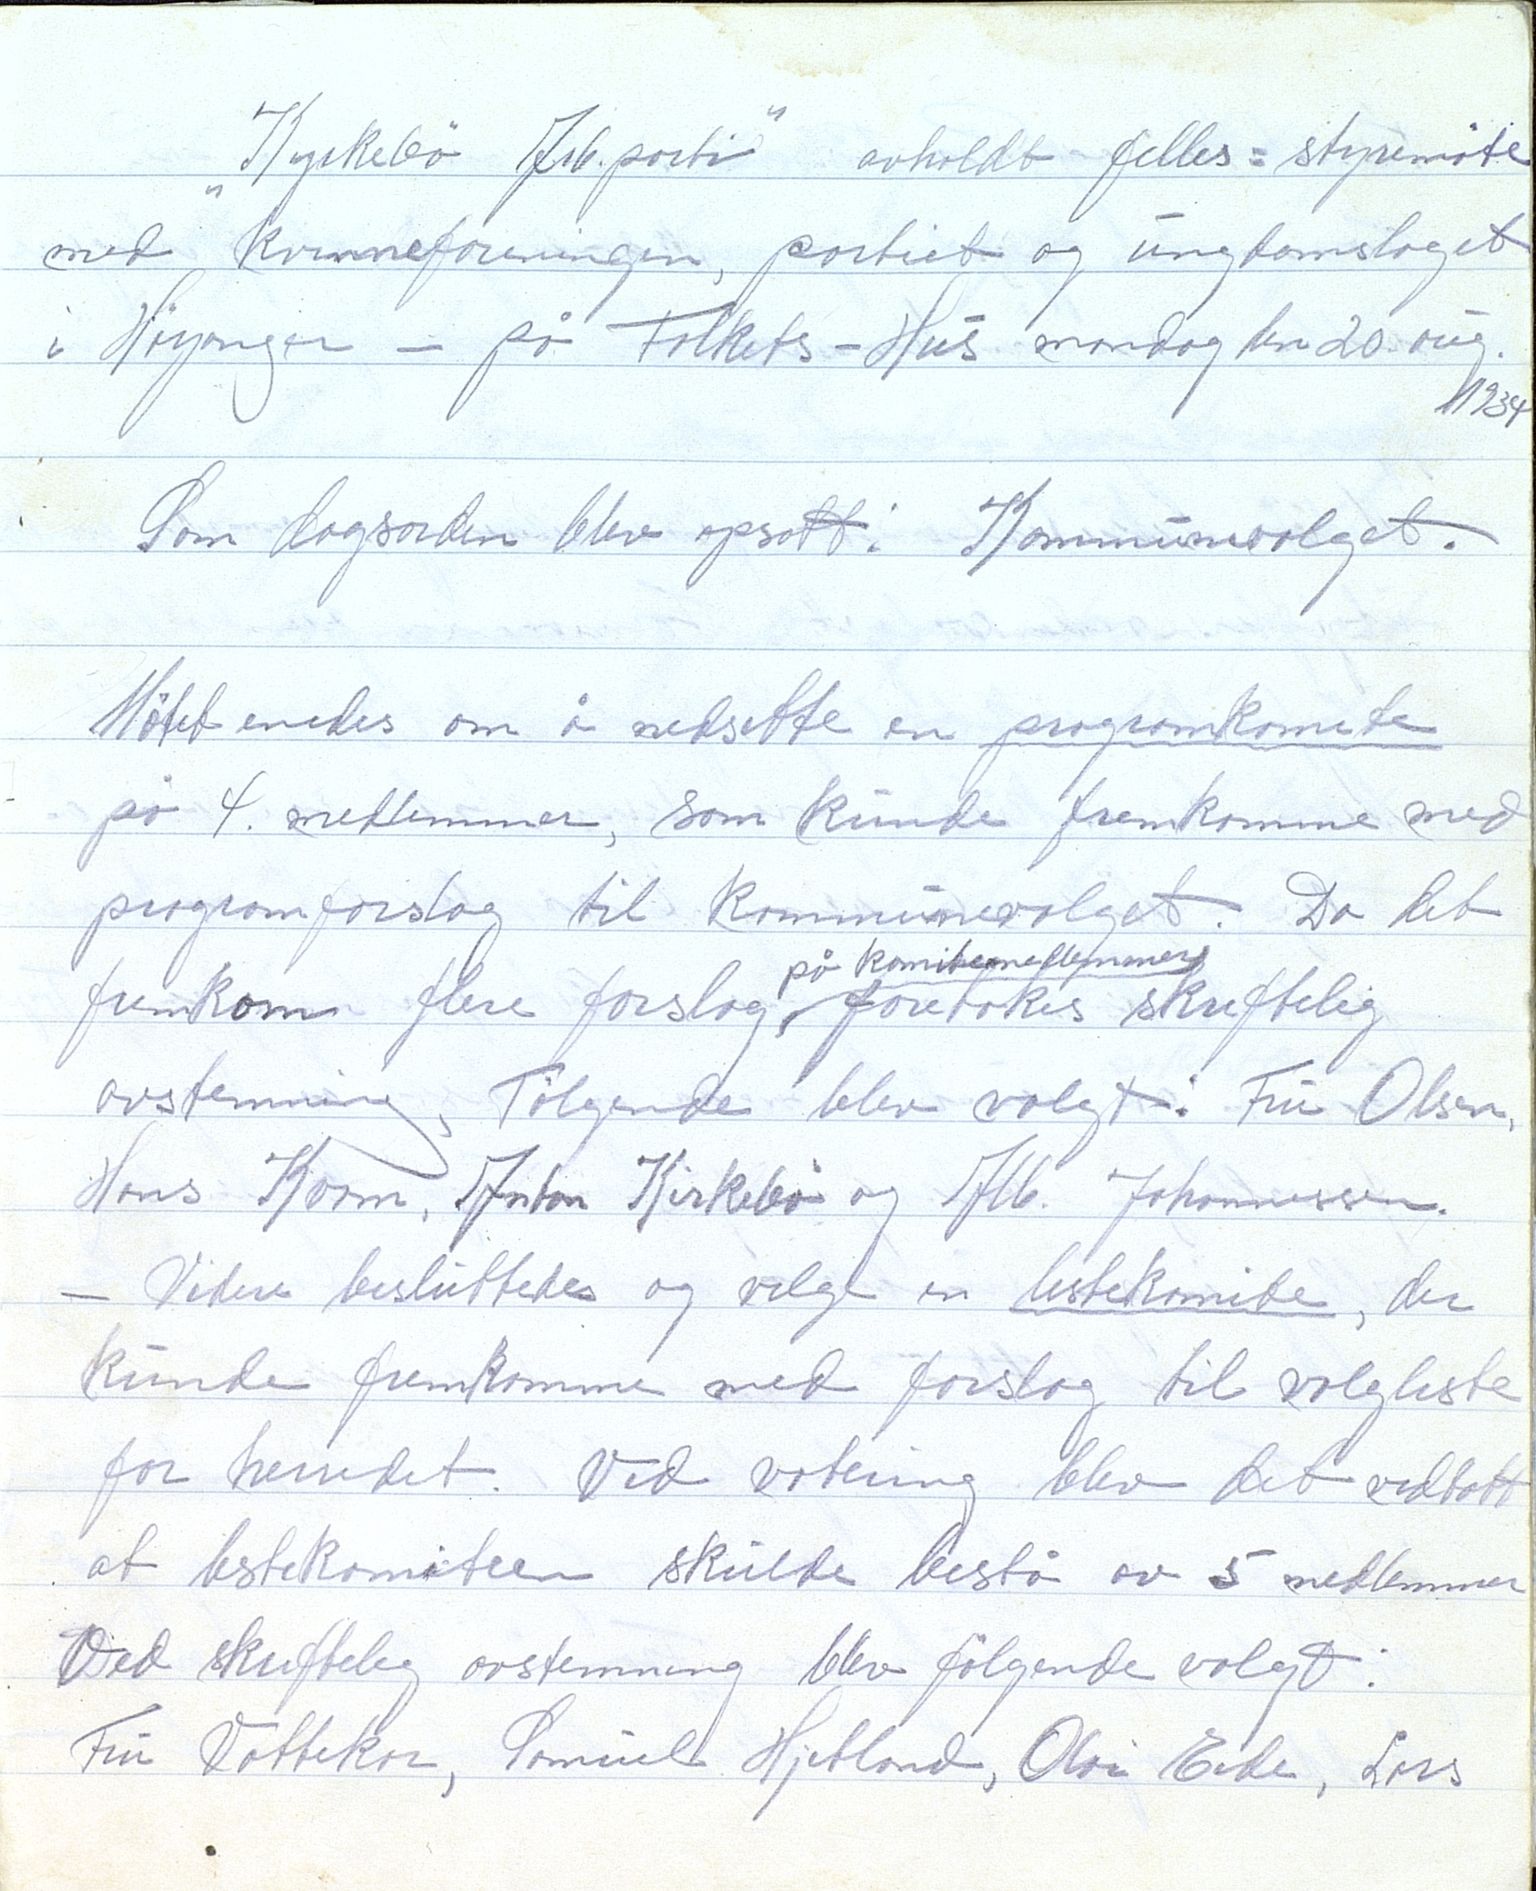 „Kyrkebö Arb.parti" avholdt felles=styremöte
med kvinneforeningen, partiet og ungdomslaget
i Höyanger – på Folkets-Hus mandag den 20. aug.
1934
Som dagsorden blev opsatt: Kommunevalget.
Mötet enedes om å nedsette en programkomite
på 4. medlemmer, som kunde fremkomme med
programforslag til kommunevalget. Da det
på komitemedlemmer
fremkom flere forslag, foretokes skriftelig
avstemning, Fölgende blev valgt: Fru Olsen,
Hans Kvam, Anton Kirkebö og Alb. Johannessen.
– Videre besluttedes og velge en listekomite, der
kunde fremkomme med forslag til valgliste
for herredet. Ved votering blev det vedtatt
at listekomiteen skulde bestå av 5 medlemmer
Ved skriftelig avstemning blev fölgende valgt:
Fru Vattekar, Samuel Hjetland, Olai Eide, Lars